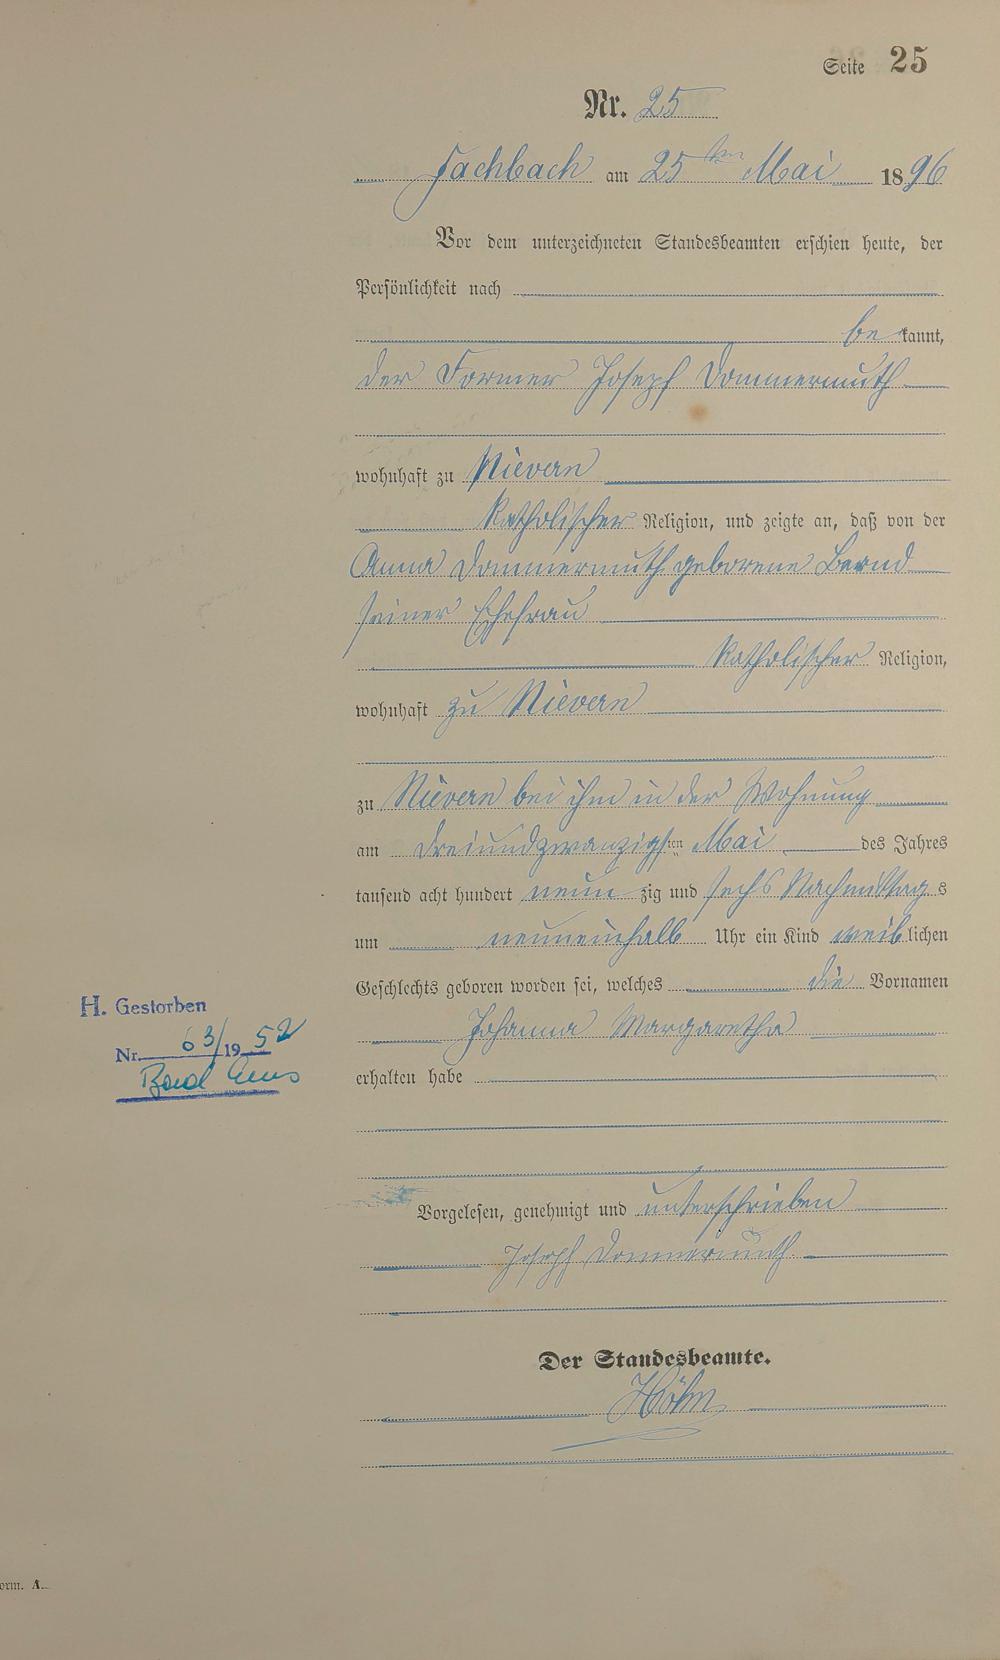 Seite 25
Nr. 25
Fachbach am 25ten Mai 1896
Vor dem unterzeichneten Standesbeamten erschien heute, der
Persönlichkeit nach
bekannt,
der Former Joseph Dommermuth
wohnhaft zu Nievern
katholischer Religion, und zeigte an, daß von der
Anna Dommermuth geborene Bernd
seiner Ehefrau
katholischer Religion,
wohnhaft zu Nievern
zu Nievern bei ihm in der Wohnung
am dreiundzwanzigsten Mai des Jahres
tausend acht hundert neunzig und sechs Nachmittags
um neuneinhalb Uhr ein Kind weiblichen
Geschlechts geboren worden sei, welches die Vornamen
H. Gestorben
Nr. 63/1952
Bad Ems
Johanna Margaretha
erhalten habe
Vorgelesen, genehmigt und unterschrieben
Joseph Dommermuth
Der Standesbeamte.
Höhn
orm. A.